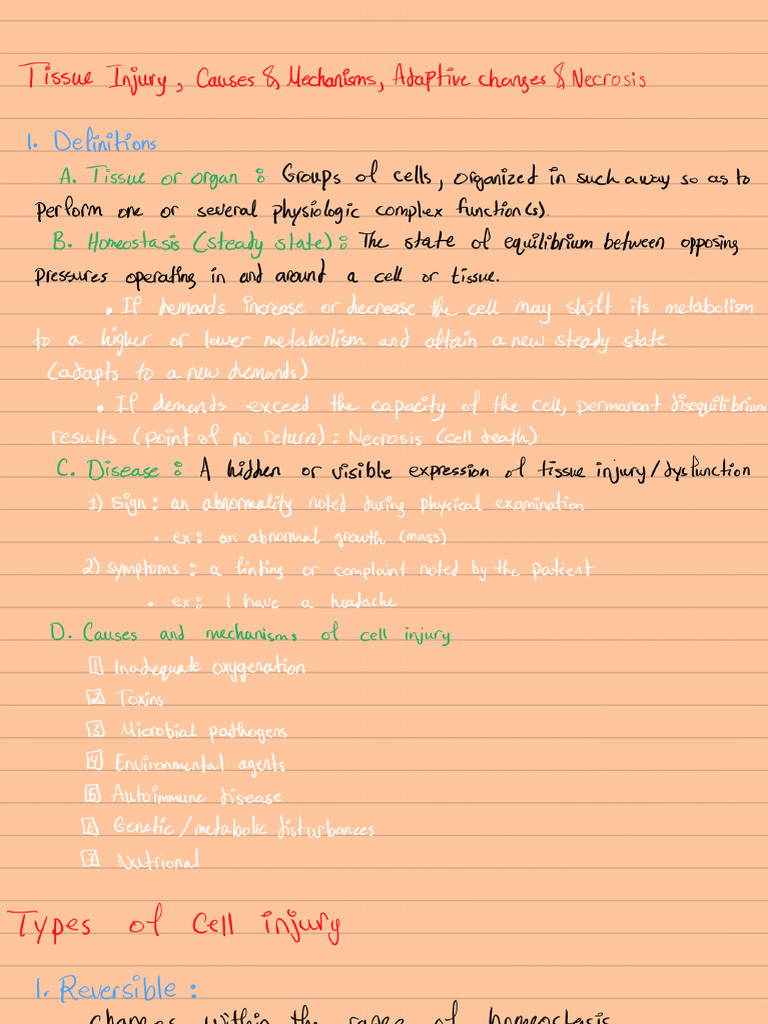 Tissue Injury, Causes & Mechanisms, Adaptive changes & Necrosis
1. Definitions
A. Tissue or organ : Groups of cells, organized in such away so as to
perform one or several physiologic complex function(s).
B. Homeostasis (steady state) : The state of equilibrium between opposing
pressures operating in and around a cell or tissue.
• If demands increase or decrease the cell may shift its metabolism
to a higher or lower metabolism and attain a new steady state
(adapts to a new demands)
• If demands exceed the capacity of the cell, permanent disequilibrium
results (point of no return) : Necrosis (cell death)
C. Disease : A hidden or visible expression of tissue injury/dysfunction
1) Sign : an abnormality noted during physical examination
• ex : an abnormal growth (mass)
2) symptoms : a finting or complaint noted by the patient
• ex : I have a headache
D. Causes and mechanisms of cell injury
1 Inadequate oxygenation
2 Toxins
3 Microbial pathogens
4 Environmental agents
5 Autoimmune disease
6 Genetic/metabolic disturbances
7 Nutrional
Types of cell injury
1. Reversible :
changes within the range of homeostasis